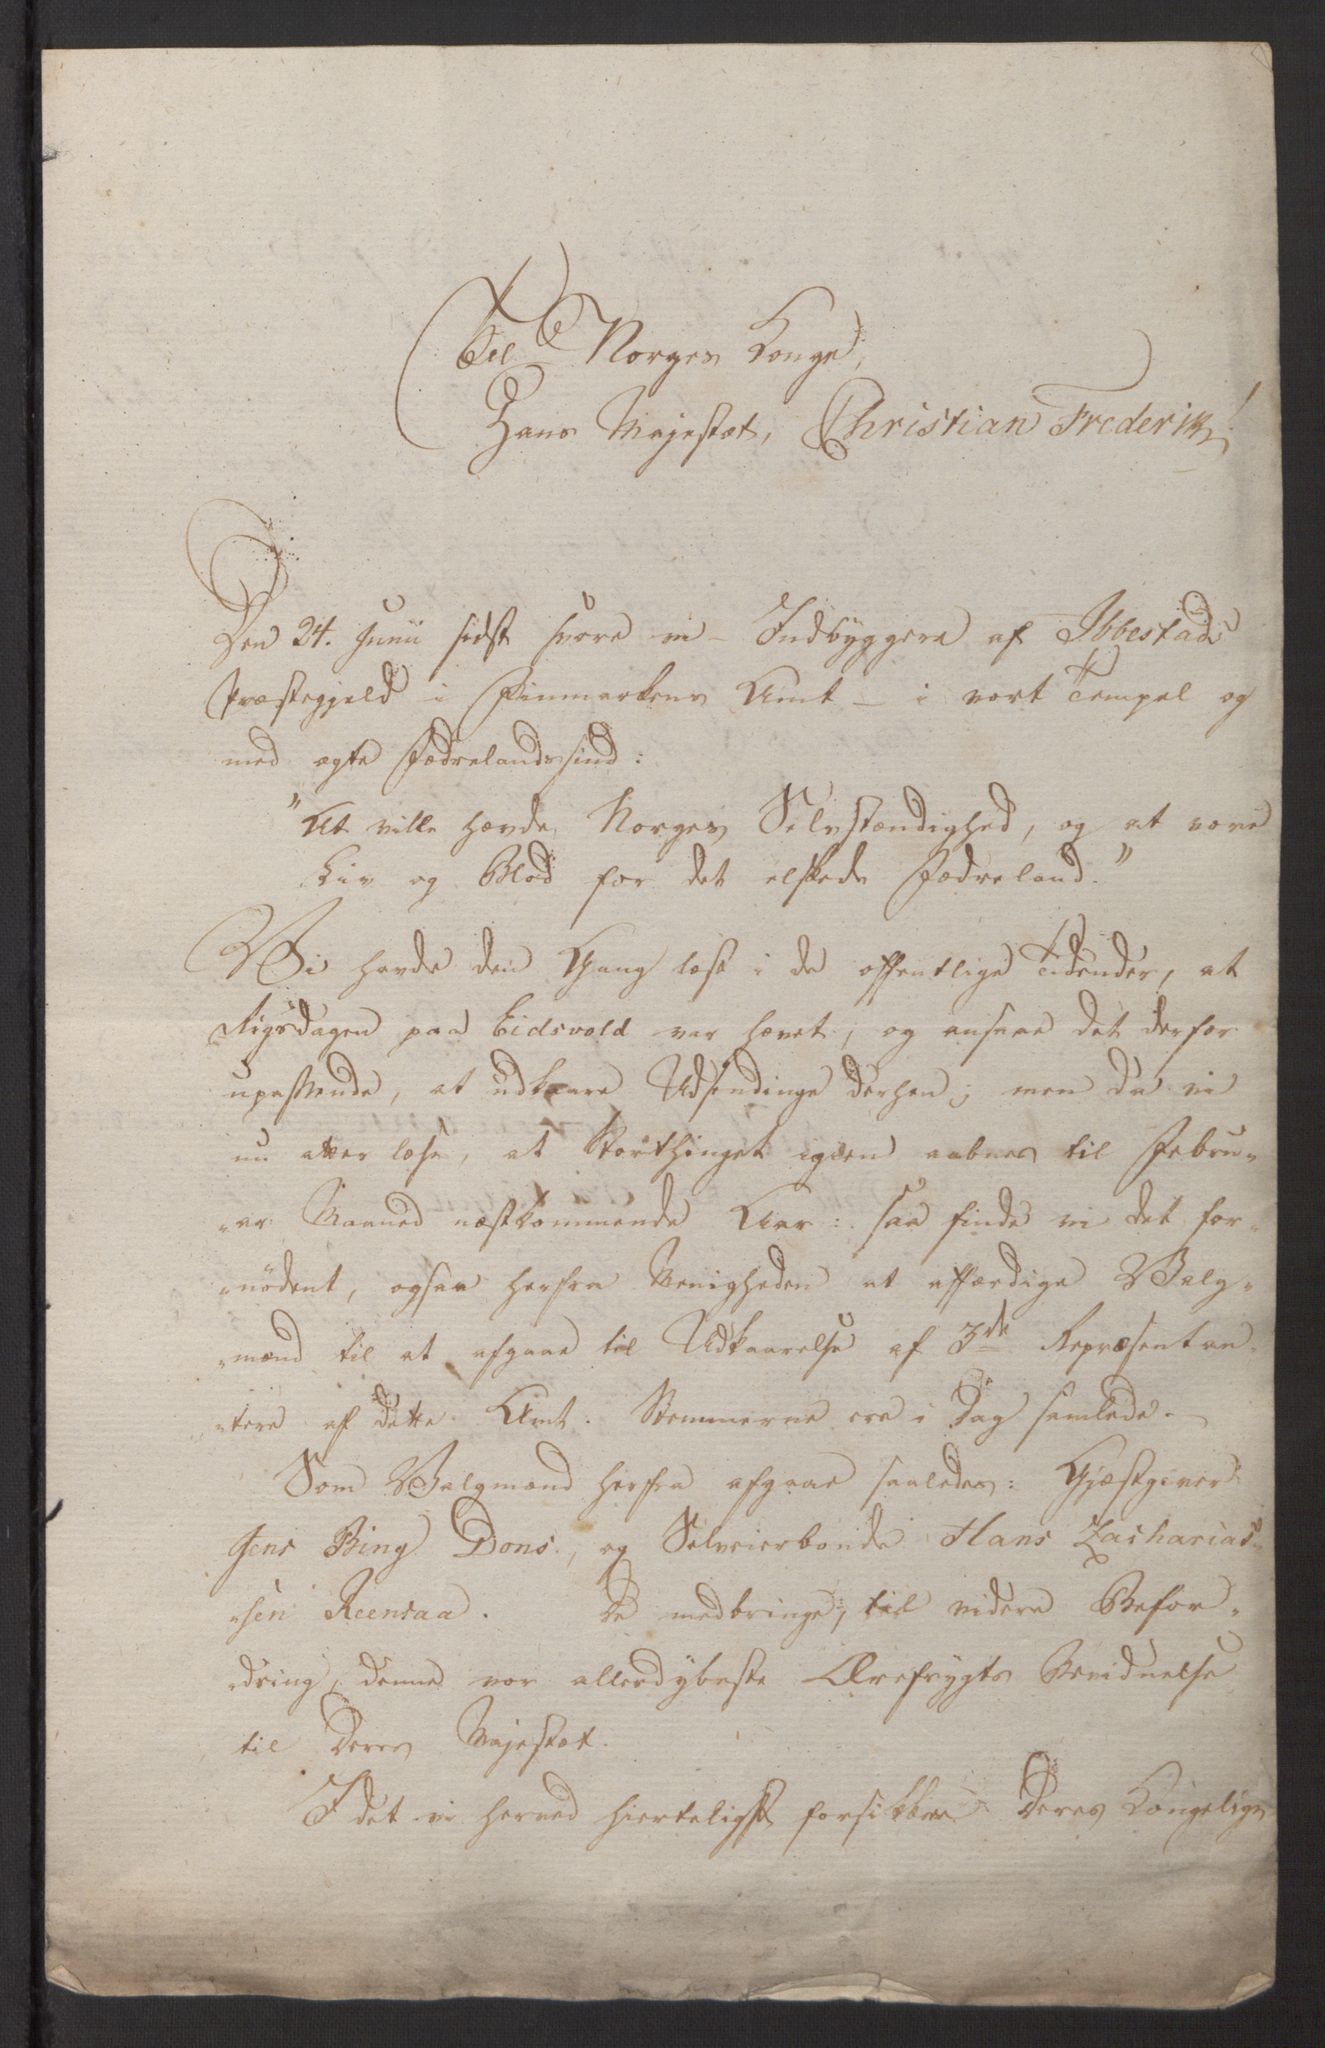 Til Norges Konge,
Hans Majestæt, Christian Frederik!
Den 24. Junii sidst svore vi – Indbyggere af Ibbestads
Præstegjeld i Finmarkens Amt – i vort Tempel og
med ægte Fædrelandssind:
"At ville hævde Norges Selvstændighed, og at vove
Liv og Blod for det elskede Fædreland."
Vi havde den Gang læst i de offentlige Tidender, at
Rigsdagen paa Eidsvold var hævet, og ansaae det derfor
upassende, at udkaare Udsendinge derhen; men da vi
nu atter læse, at Storthinget igien aabnes til Febru-
-ar Maaned næstkommende Aar: saa finde vi det for-
-nødent, ogsaa herfra Menigheden at affærdige Valg-
-mænd til at afgaae til Udkaarelse af 3de Repræsentan-
-tere af dette Amt. Stemmerne ere i Dag samlede.
Som Valgmænd herfra afgaae saaledes: Gjæstgiver
Jens Bing Dons, og Selveierbonde Hans Zacharias-
-sen Reensaa. De medbringe, til videre Befor-
-dring, denne vor allerdybeste Ærefrygts Bevidnelse
til Deres Majestæt.
Idet vi herved hierteligst forsikkre Deres Kongelige